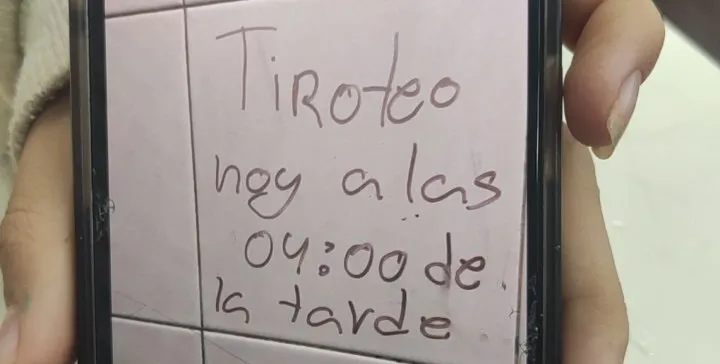 TiRoteo
hoy a las
04:00 de
la tarde